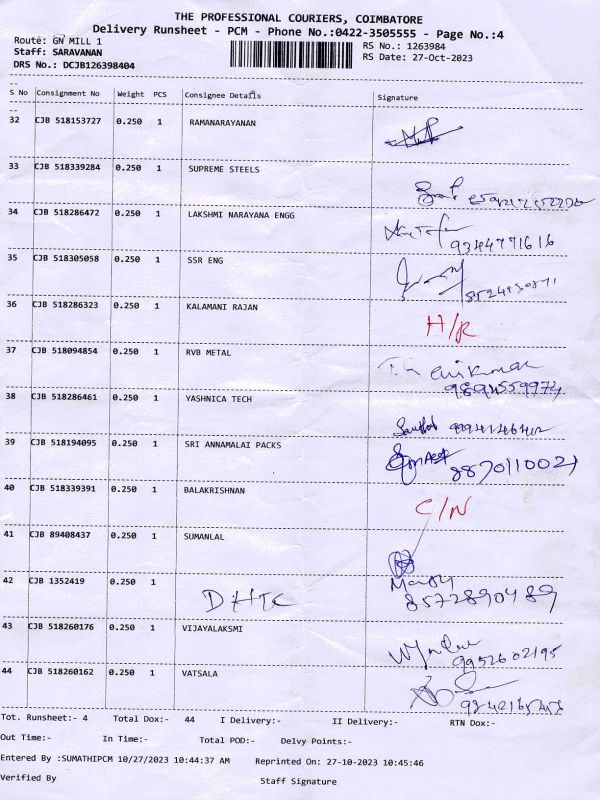 THE PROFESSIONAL COURIERS, COIMBATORE
Delivery Runsheet - PCM - Phone No.:0422-3505555 - Page No.:4
Route: GN MILL 1
Staff: SARAVANAN
DRS No.: DCJB126398404
RS No.: 1263984
RS Date: 27-Oct-2023
S No Consignment No Weight PCS Consignee Details Signature
32 CJB 518153727 0.250 1 RAMANARAYANAN
33 CJB 518339284 0.250 1 SUPREME STEELS
34 CJB 518286472 0.250 1 LAKSHMI NARAYANA ENGG
9344771616
35 CJB 518305058 0.250 1 SSR ENG
36 CJB 518286323 0.250 1 KALAMANI RAJAN
H/R
37 CJB 518094854 0.250 1 RVB METAL
9894559974
38 CJB 518286461 0.250 1 YASHNICA TECH
39 CJB 518194095 0.250 1 SRI ANNAMALAI PACKS
8870110021
40 CJB 518339391 0.250 1 BALAKRISHNAN
C/N
41 CJB 89408437 0.250 1 SUMANLAL
42 CJB 1352419 0.250 1
DHTC
8572890489
43 CJB 518260176 0.250 1 VIJAYALAKSMI
9952602195
44 CJB 518260162 0.250 1 VATSALA
Tot. Runsheet:- 4 Total Dox:- 44 I Delivery:- II Delivery:- RTN Dox:-
Out Time:- In Time:- Total POD:- Delvy Points:-
Entered By :SUMATHIPCM 10/27/2023 10:44:37 AM Reprinted On: 27-10-2023 10:45:46
Verified By Staff Signature